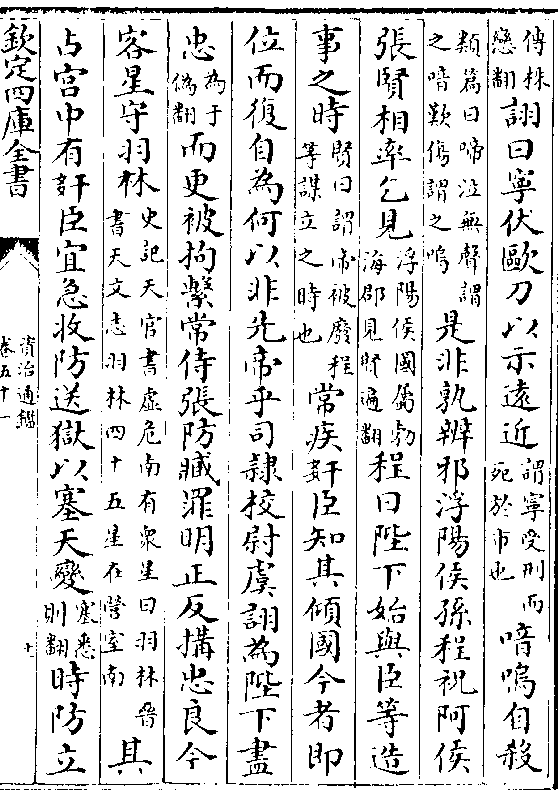 傳株
戀翻
詡曰寧伏歐刀以示遠近
謂寧受刑而
死於市也
喑嗚自殺
類篇曰啼泣無聲謂
之喑歎傷謂之嗚
是非孰辨邪浮陽侯孫程祝阿侯
張賢相率乞見
浮陽侯國屬勃
海郡見賢遍翻
程曰陛下始與臣等造
事之時
賢曰謂帝被廢程
等謀立之時也
常疾奸臣知其傾國今者即
位而復自為何以非先帝乎司隸校尉虞詡為陛下盡
忠
為于
偽翻
而更被拘繫常侍張防臧罪明正反搆忠良今
客星守羽林
史記天官書虛危南有衆星曰羽林晉
書天文志羽林四十五星在營室南
其
占宫中有奸臣宜急收防送獄以塞天變
塞悉
則翻
時防立
欽定四庫全書
資治通鑑
卷五十一
十一